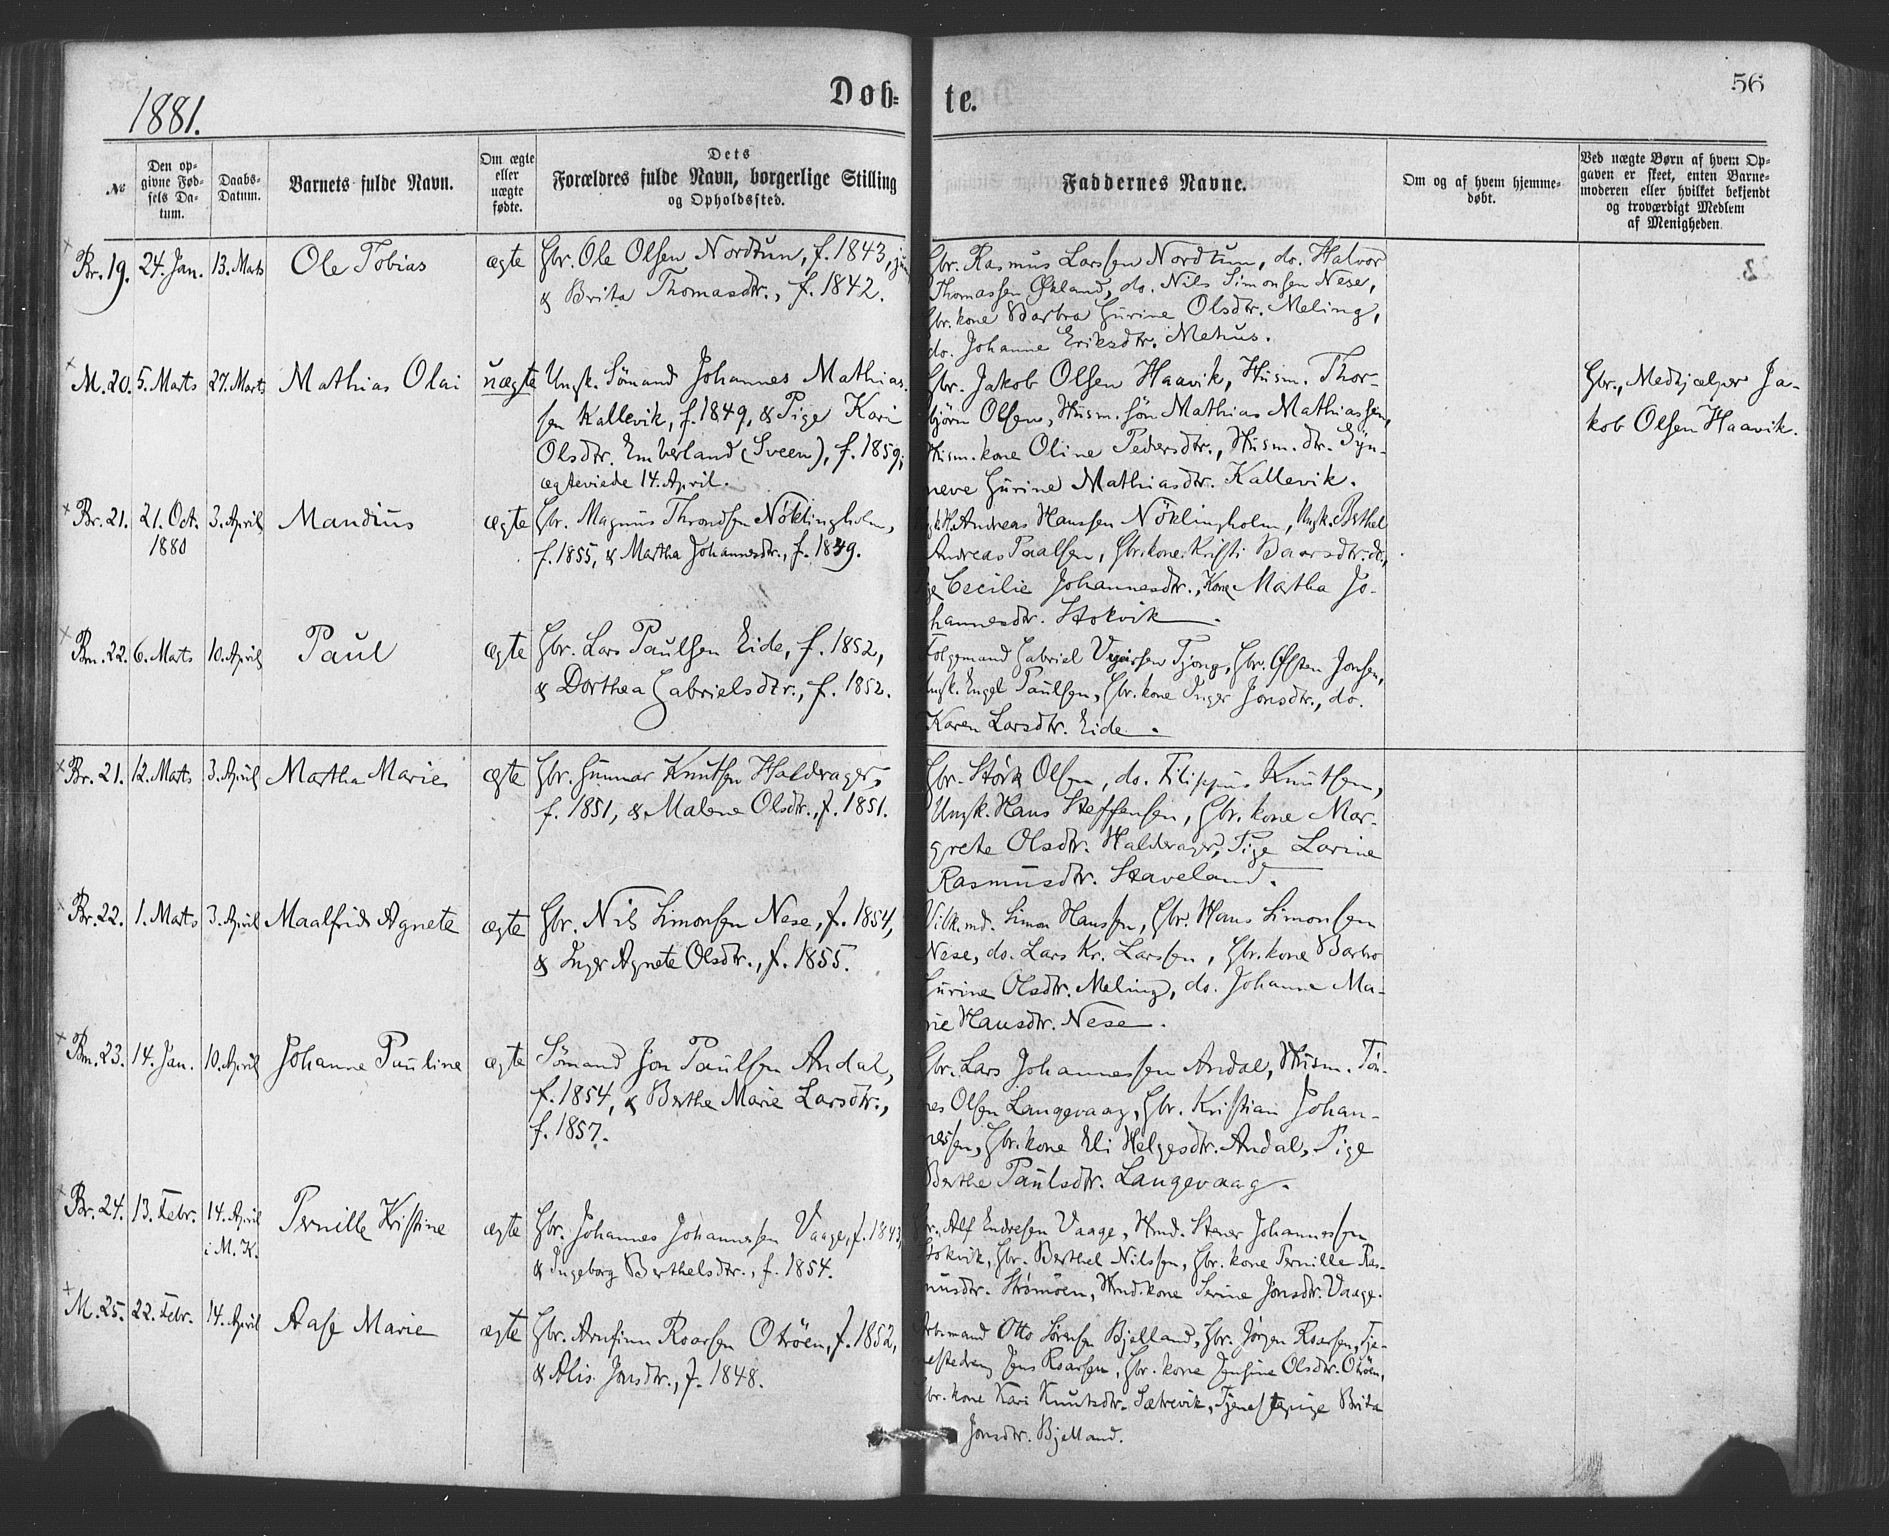 1881.
Døb=
te.
56
№
Den op=
givne Fød=
sels Da=
tum.
Daabs=
Datum.
Barnets fulde Navn.
Om ægte
eller
uægte
fødte.
Dets
Forældres fulde Navn, borgerlige Stilling
og Opholdssted.
Faddernes Navne.
Om og af hvem hjemme=
døbt.
Ved uægte Børn af hvem Op=
gaven er skeet, enten Barne=
moderen eller hvilket bekjendt
og troværdigt Medlem
af Menigheden.
Br. 19. 24. Jan. 13. Mats Ole Tobias ægte Gbr. Ole Olsen Nordtun, f. 1843,
& Brita Thomasdtr., f. 1842.
Gbr. Rasmus Larssen Nordtun, do. Halvor
Thomassen Økland, do. Nils Simonsen Nese,
Gbr. kone Barbra Gurine Olsdtr. Meling,
do. Johanne Eriksdtr. Mehus.
M. 20. 5. Marts 27. Marts Mathias Olai uægte Ungk. Sømand Johannes Mathias-
sen Kallevik, f. 1849, & Pige Kari
Olsdtr. Emberland (Sveen), f. 1859;
ægteviede 14. April.
Gbr. Jakob Olsen Haavik, Husm. Thor-
bjørn Olsen, Husm. søn Mathias Mathiassen,
Husm. kone Oline Pedersdtr., Husm. dtr. Syn-
neve Gurine Mathiasdtr. Kallevik.
Gbr., Medhjælper Ja-
kob Olsen Haavik.
Br. 21. 21. Oct. 3. April Mandius ægte Gbr. Magnus Throndsen Nöklingholm,
1880
f. 1855, & Martha Johannesdtr., f. 1849.
Andreas Hanssen Nöklingholm, Ungk. Berthel
Andreas Paalsen, Gbr. kone Kristi Baarsdtr. do.,
Pige Cecilie Johannesdtr., Kone Martha Jo-
hannesdtr. Stokvik.
Bm. 22. 6. Marts 10. April Paul ægte Gbr. Lars Paulsen Eide, f. 1852,
& Dorthea Gabrielsdtr., f. 1852.
Folgemand Gabriel Tjong, Gbr. Østen Jonsen,
Ungk. Engel Paulsen, Gbr. kone Inger Jonsdtr., do.
Karen Larsdtr. Eide.
Br. 21. 12. Marts 3. April Martha Marie ægte Gbr. Gunnar Knutsen Haldorager,
f. 1851, & Malene Olsdtr., f. 1851.
Gbr. Störk Olsen, do. Filippus Knutsen,
Ungk. Hans Steffensen, Gbr. kone Mar-
grete Olsdtr. Haldorager, Pige Larine
Rasmusdtr. Staveland.
Br. 22. 1. Marts 3. April Maalfrid Agnete ægte Gbr. Nils Simonsen Nese, f. 1854,
& Inger Agnete Olsdtr., f. 1855.
Vilk. md. Simon Hanssen, Gbr. Hans Simonsen
Nese, do. Lars Kr. Larssen, Gbr. kone Barbro
Gurine Olsdtr. Meling, do. Johanne Ma-
rie Hansdtr. Nese.
Bm. 23. 14. Jan. 10. April Johanne Pauline ægte Sømand Jon Paulsen Andal,
f. 1854, & Berthe Marie Larsdtr.,
f. 1857.
Gbr. Lars Johannessen Andal, Husm. Tön-
nes Olsen Langevaag, Gbr. Kristian Johan-
nessen, Gbr. kone Eli Helgesdtr. Andal, Pige
Berthe Paulsdtr. Langevaag.
Br. 24. 13. Febr. 14. April Pernille Kristine ægte Gbr. Johannes Johannessen Vaage, f. 1843,
i M. K.
& Ingeborg Berthelsdtr., f. 1854.
Gbr. Alf Endresen Vaage, Hmd. Stener Johannessen
Stokvik, Gbr. Berthel Nilssen, Gbr. kone Pernille Ras-
musdtr. Strømöen, Hmd. kone Serine Jonsdtr. Vaage.
M. 25. 22. Febr. 14. April Aase Marie ægte Gbr. Arnfinn Roarsen Otröen, f. 1852,
& Alis Jonsdtr., f. 1848.
Otto Sørensen Bjelland, Gbr. Jörgen Roarsen, Tje-
nestedreng Jens Roarsen, Gbr. kone Jensine Olsdtr. Otröen,
Gbr. kone Kari Knutsdtr. Sætrevik, Tjenestepige Brita
Jonsdtr. Bjelland.